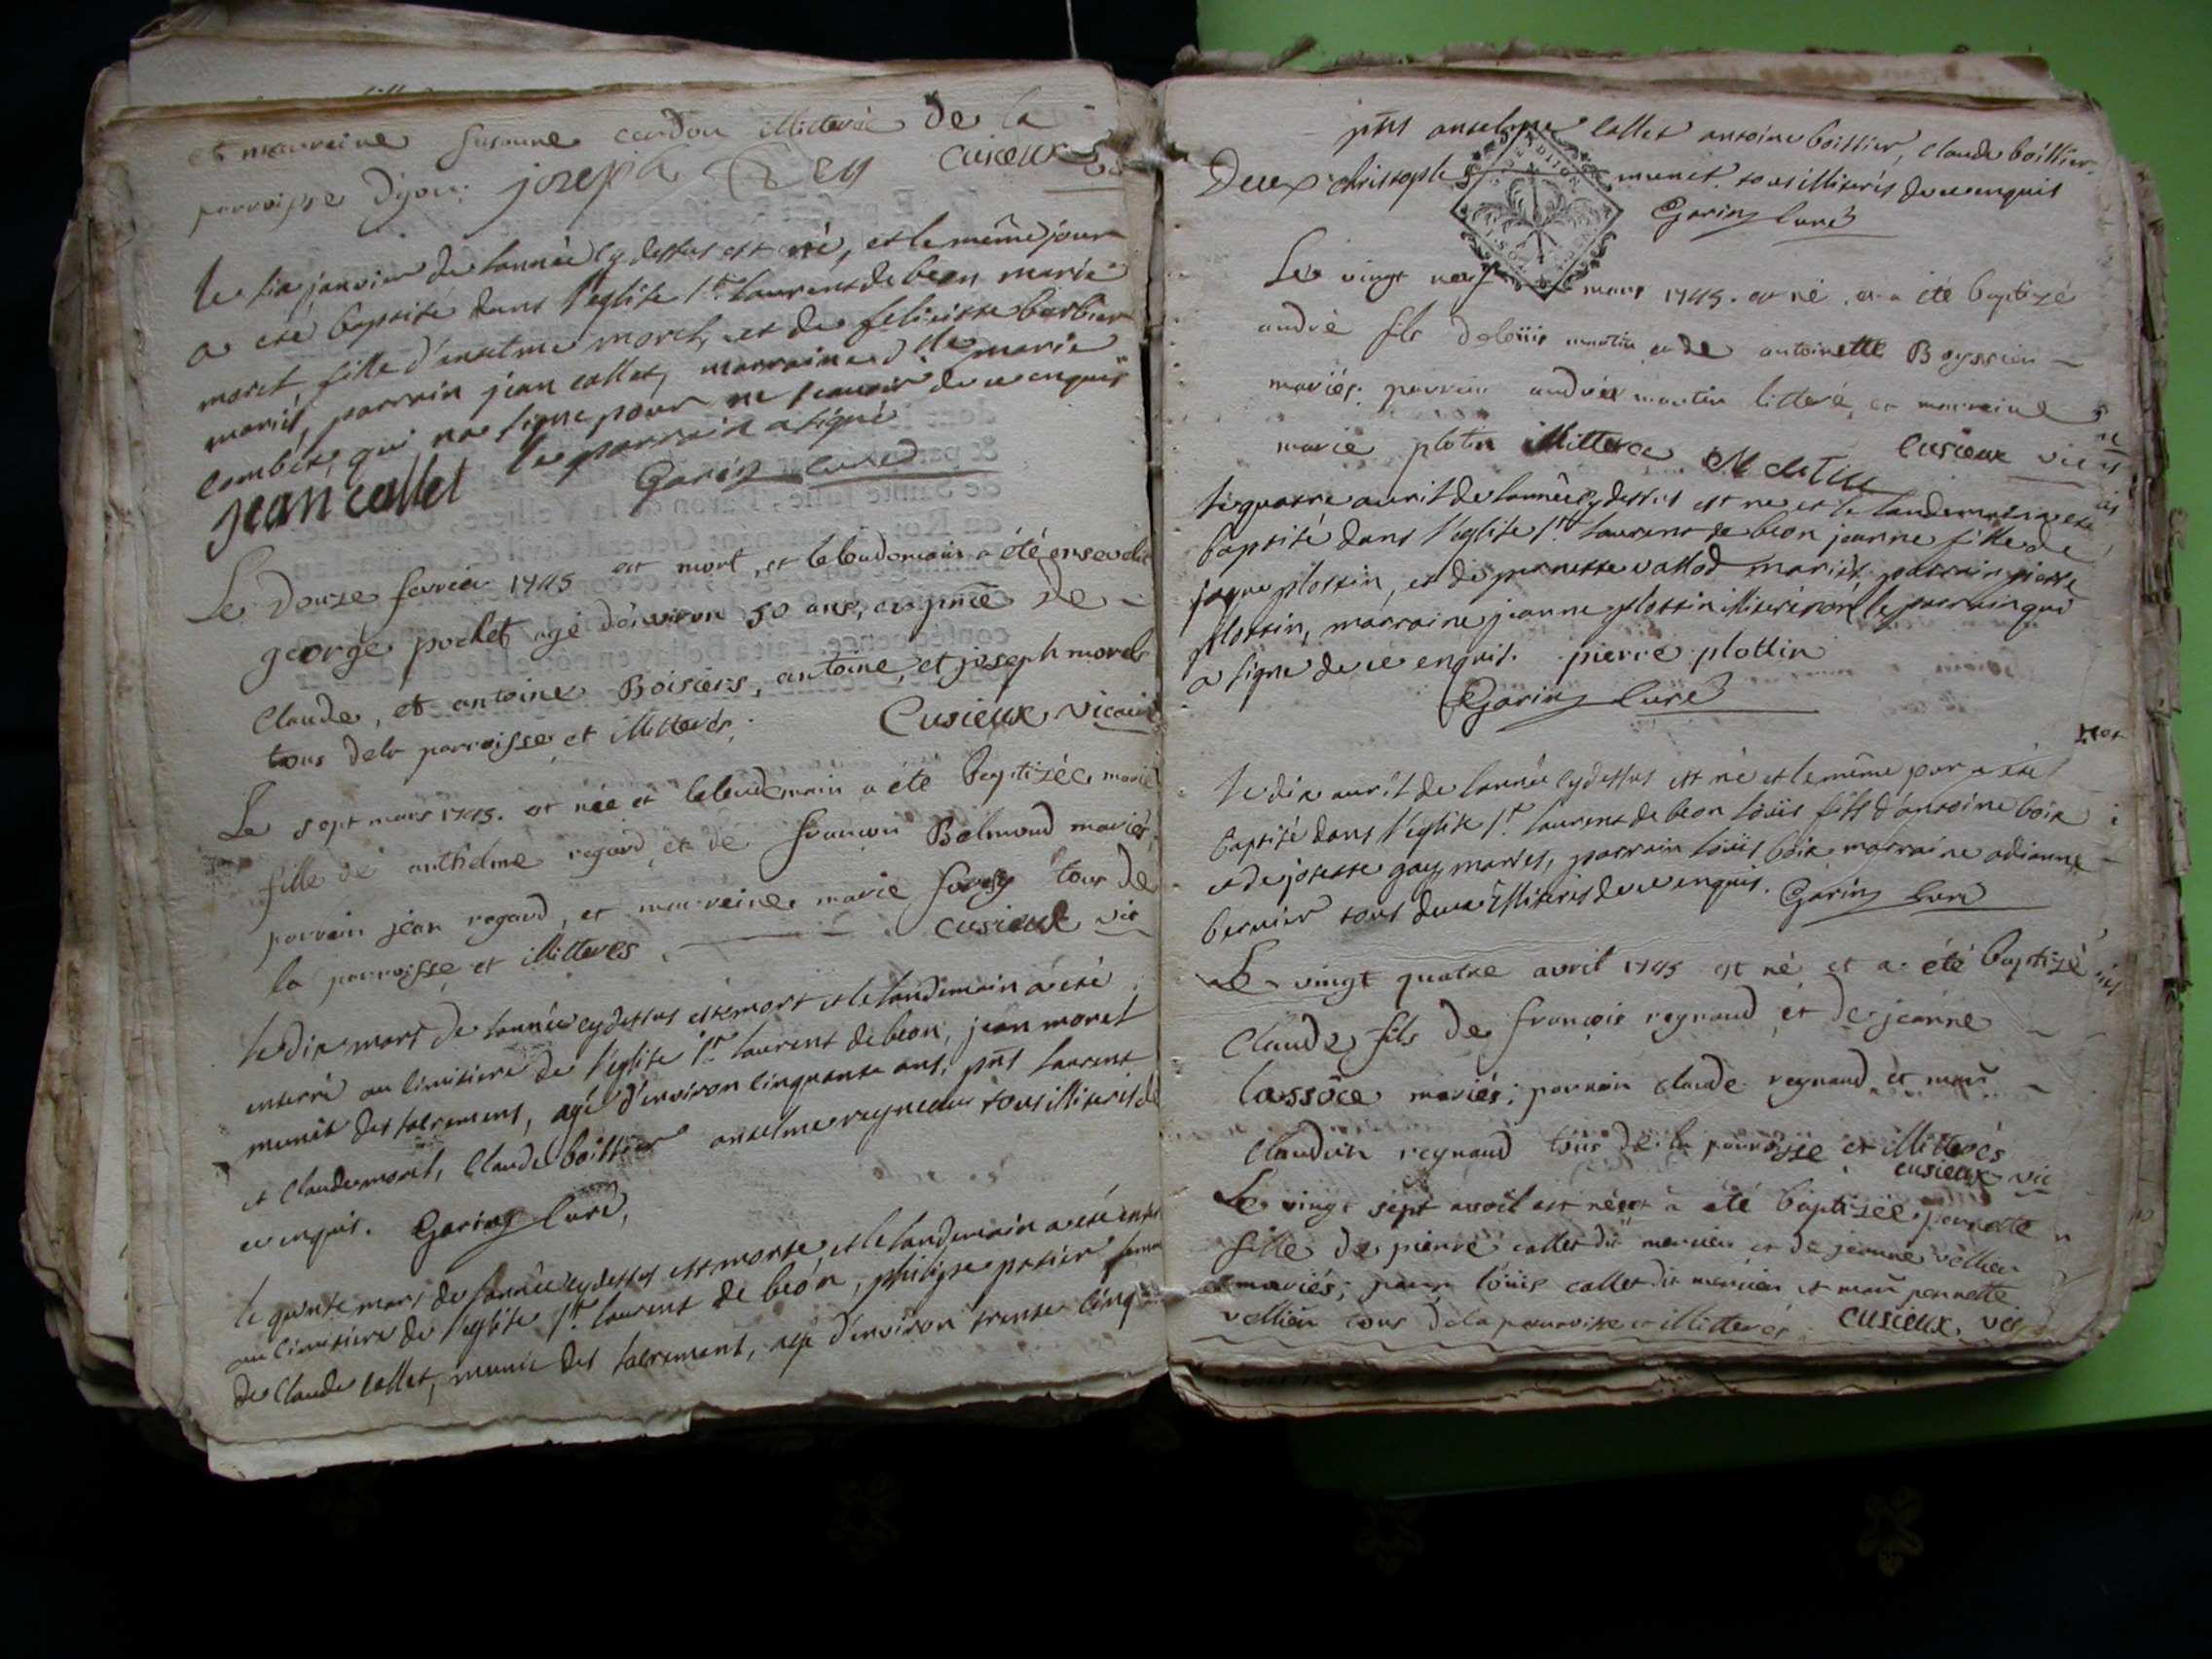 et marraine susanne cardon illiterée de la
parroisse d'yon: joseph Rey cusieux vic
le six janvier de lannée cy dessus est né, et le même jour
a eté baptisé dans l'eglise st. laurent de beon marie
moret fille d'enselme moret, et de felicisse barbier
mariés, parrain jean collet, marraine dlle marie
combet, qui na signé pour ne scavoir de ce enquis
le parrain a signé
jean collet Garin curé
Le douze fevrier 1745 est mort, et le lendemain a été enseveli
george pochet agé d'environ 50 ans, en pnce de
Claude, et antoine Boisiers, antoine, et joseph morels
tous dela parroisse et illiterés. Cusieux vicaire
Le sept mars 1745. est née et lelendemain a été baptizée marie
fille de anthelme regard, et de francoise Belmond mariés,
parrain jean regard, et marreine marie tous de
la parroisse et illiteres. cusieux vic
le dix mars de lannée cy dessus est mort et le landemain a eté
enterré au cimitiere de l'eglise st. laurent de beon, jean moret
munit des sacrements, agé d'environ cinquante ans, pnts laurent
et claude moret, claude boittier anselme regneau tous illiterés de
ce enquis. Garin curé,
le quinse mars de lannée cy dessus est morte, et le landemain a eté enter
au cimitiere de l'eglise st. laurent de beon, philippe patier femme
de claude collet, munie des sacrement, agé d'environ trente cinq
pnts anselme collet antoine boittier, claude boittier
Deux christople munet. tous illiterés de ce enquis
Garin curé
Le vingt neuf mars 1745. est né, et a été baptizé
andré fils de loüis martin et de antoinette Boyssin
mariés: parrain andré martin litteré, et marreine
marie plotin illiterée Martin cusieux vic
le quatre auril de lannée cy dessus est ne et le landemain a eté
baptisé dans l'eglise st. laurent de beon jeanne fille de
jaque plottin, et de pernette vallod mariés, parrain pierre
plottin, marraine jeanne plottin illiteré non le parrain qui
a signé de ce enquis. pierre plottin
Garin curé
le dix auril de lannée cy dessus est né et le même jour a eté
baptisé dans l'eglise st. laurent de beon loüis fils d'antoine boix
et de josette gay mariés, parrain loüis boix marraine adrianne
bernier tous deux illiterés de ce enquis. Garin curé
Le vingt quatre avril 1745 est né et a été baptizé
Claude fils de francois reynaud et de jeanne
lassôce mariés; parrain claude reynaud et marr
claudin reynaud tous de la parroisse et illiterés
cusieux vic
Le vingt sept avril est née et a été baptizée pernette
fille de pierre collet dit mercier et de jeanne vellier
mariés; parr loüis collet dit mercier et marr pernette
vellier tous dela parroisse et illiterés. cusieux. vic